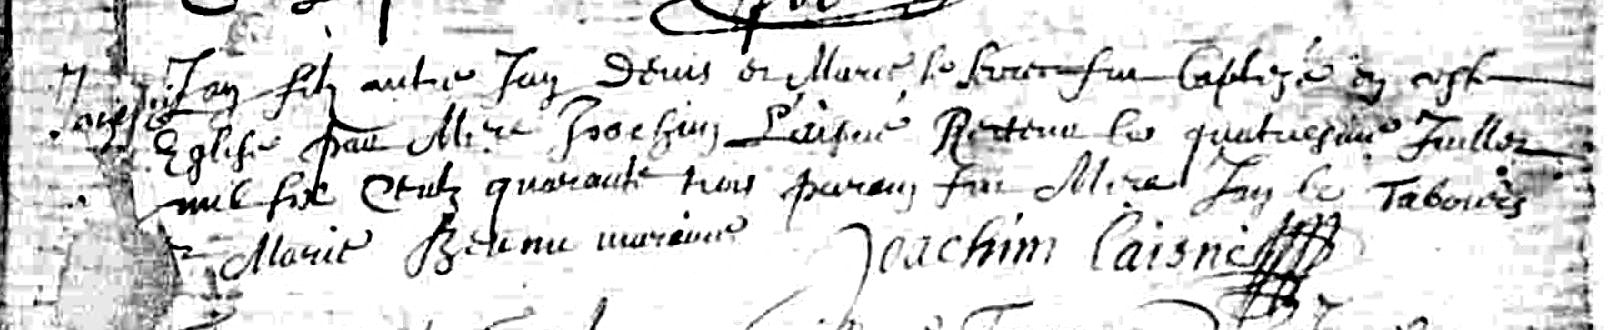 Jan filz autre Jan Denis et Marie le fut baptizé en ceste
Eglise par Mire Joachim Laisné Recteur le quatriesme Juillet
mil six centz quarante trois parain fut Mire Jan le Tabourés
Marie maraine Joachim Laisné